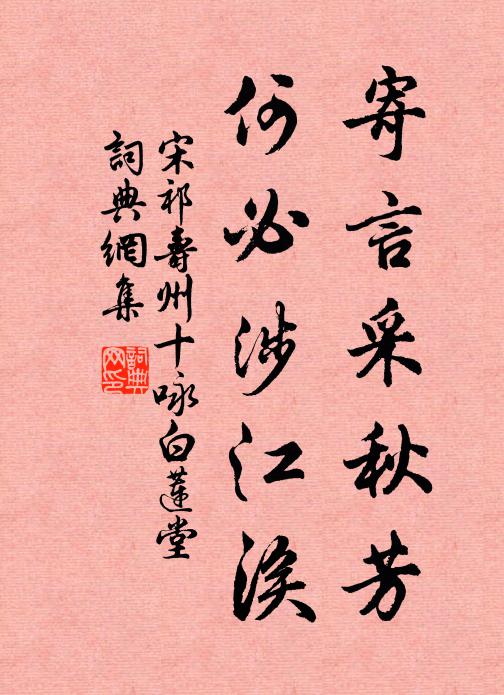 寄言采秋芳
何必涉江涘
宋祁壽州十咏白蓮堂
詞典網集
詞典網印